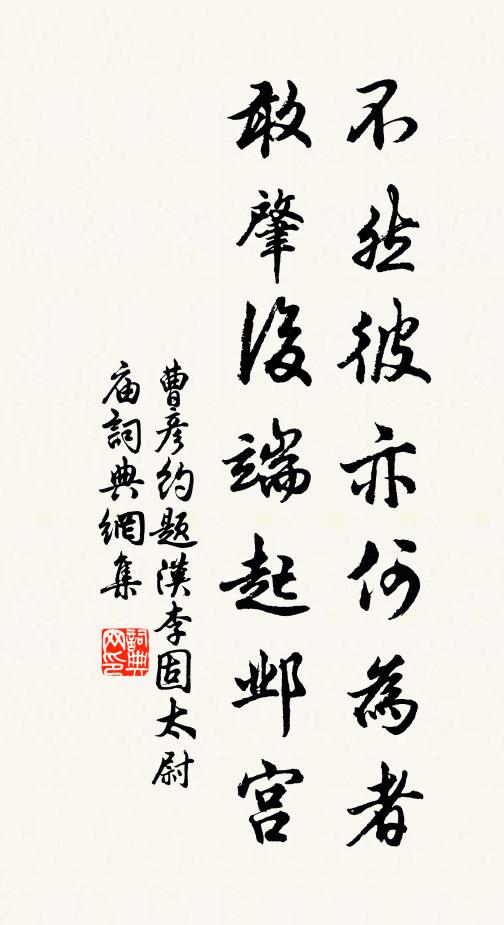 不然彼亦何為者
敢肇后端起邺宫
曹彦约题漢李固太尉
庙詞典網集
詞典
网印